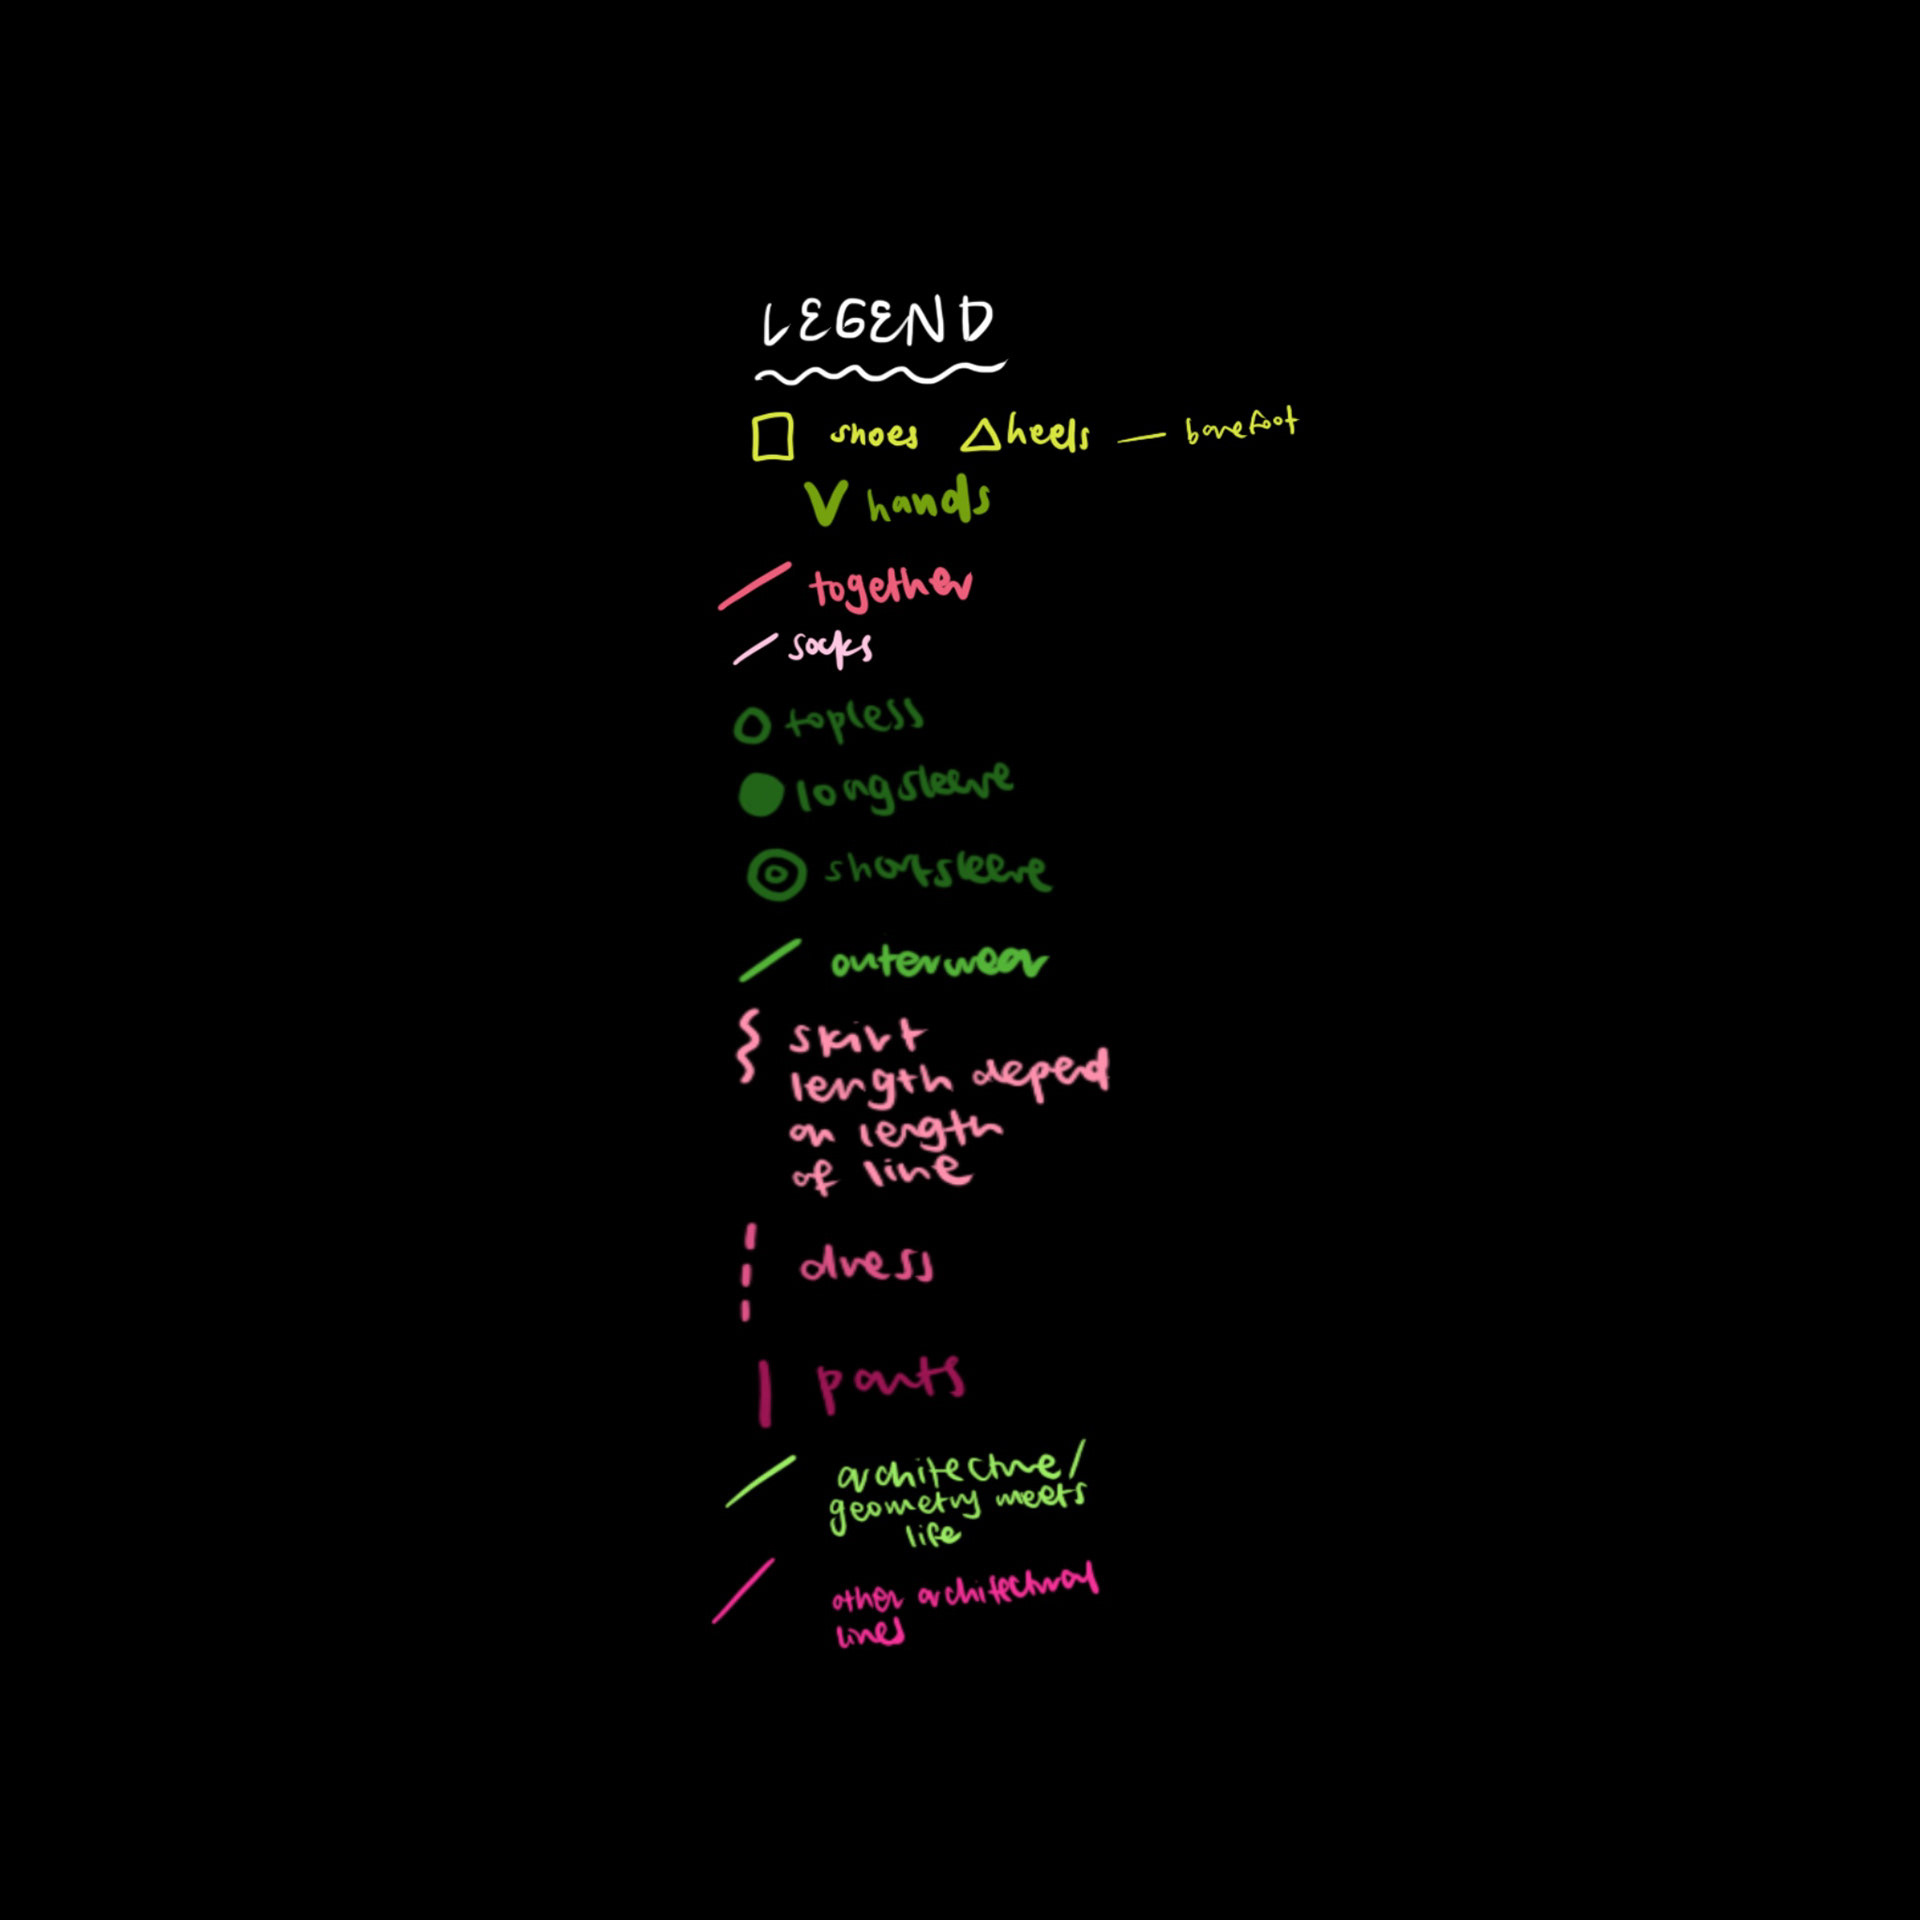 LEGEND
shoes heels barefoot
hands
together
socks
topless
longsleeve
shortsleeve
outerwear
skirt
length depend
on length
of line
dress
pants
architecture/
geometry meets
life
other architectural
lines